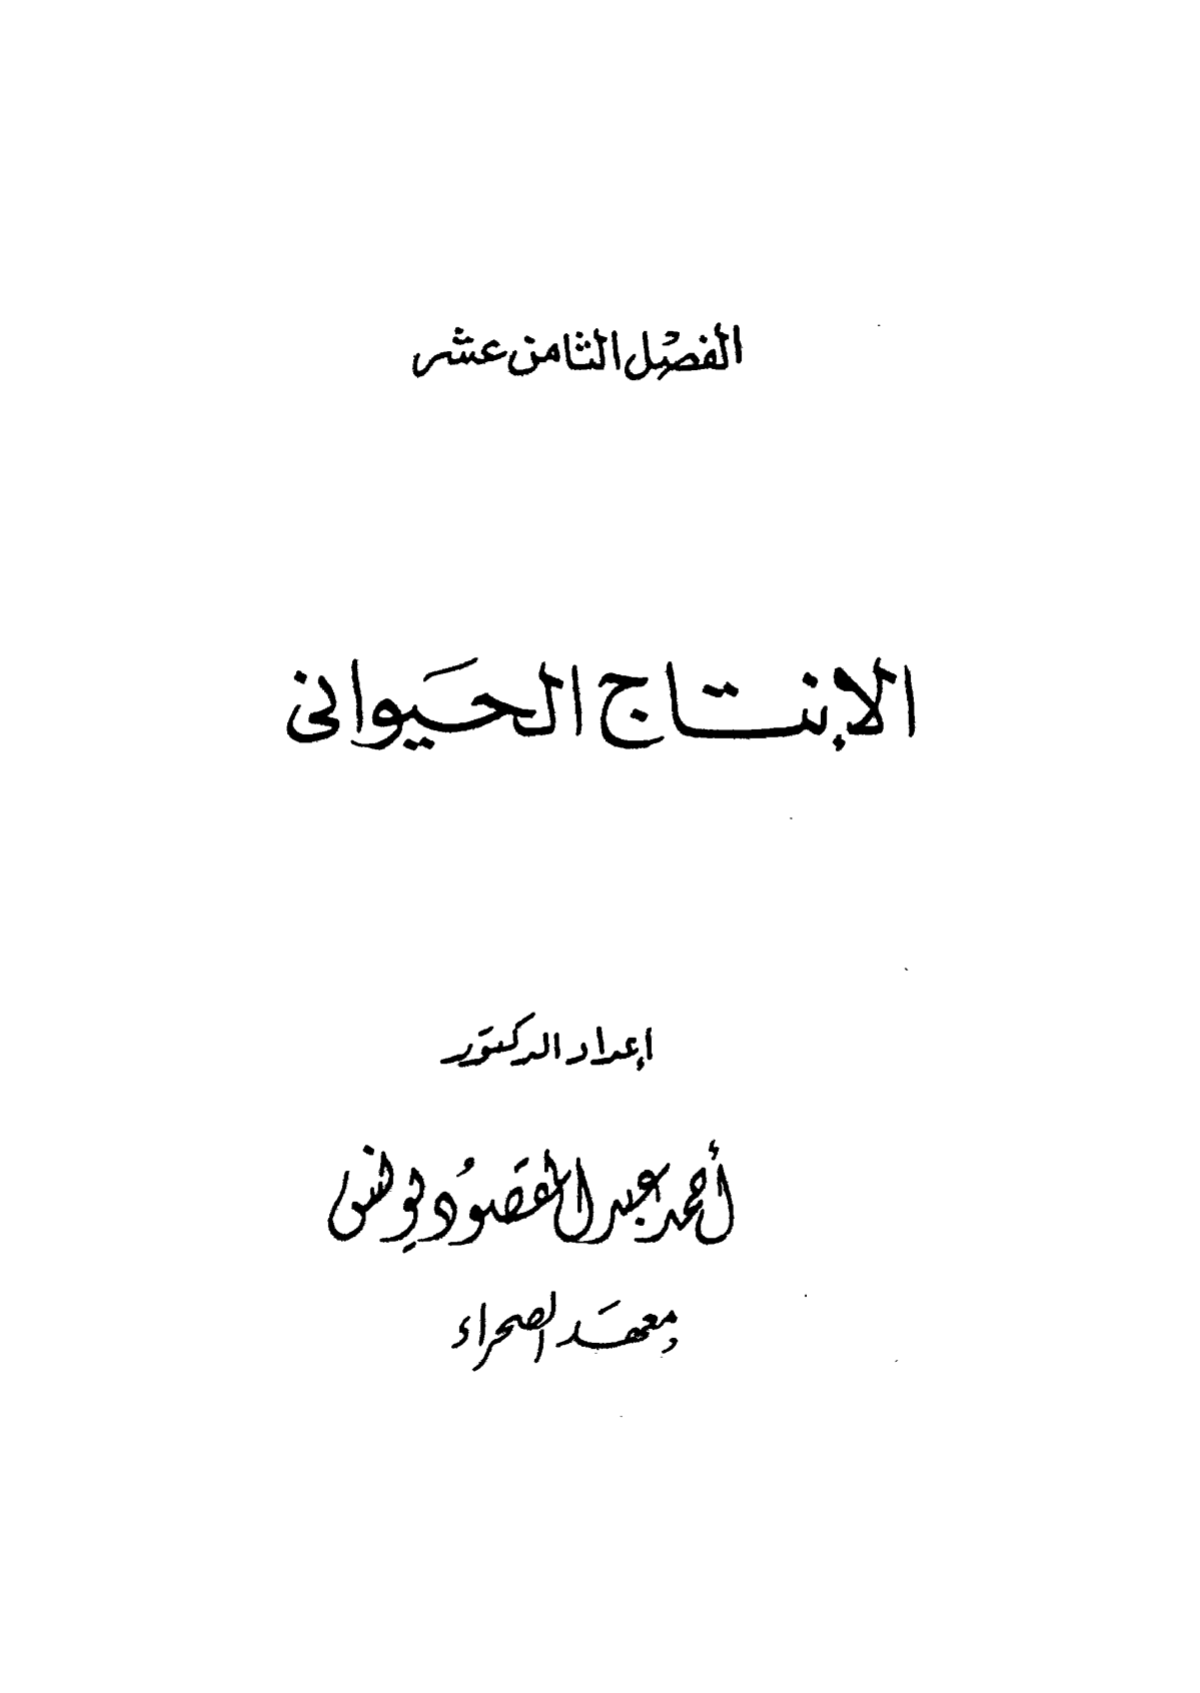 الفصل الثامن عشر
الإنتاج الحيوانى
إعداد الدكتور
أحمد عبد المقصود يونس
معهد الصحراء